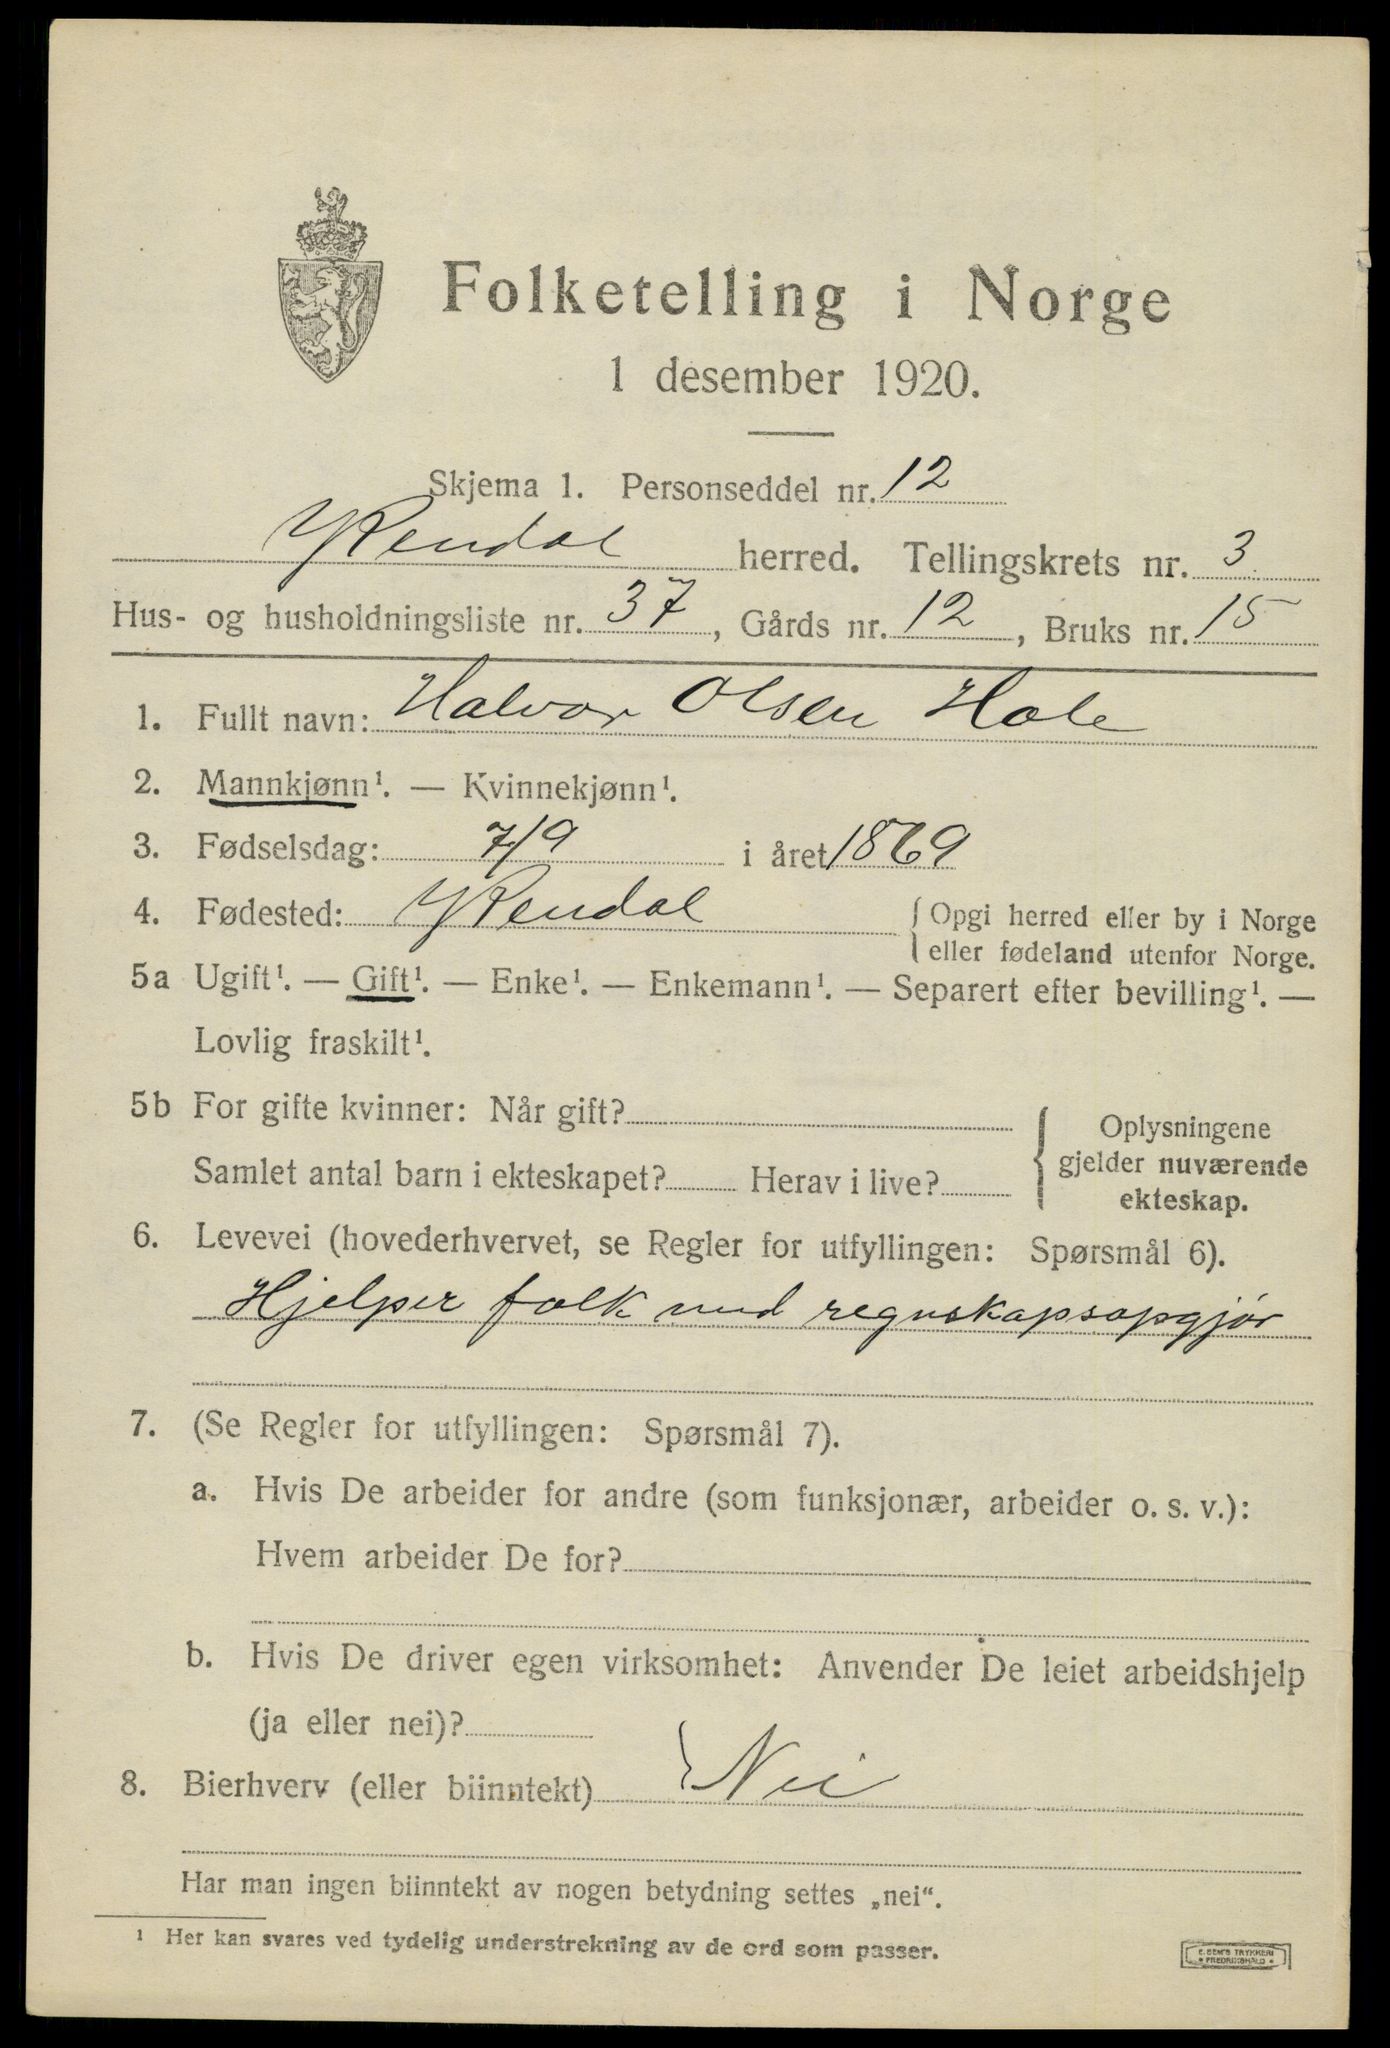 Folketelling i Norge
1 desember 1920.
Skjema 1. Personseddel nr. 12
YRendal herred. Tellingskrets nr. 3
Hus- og husholdningsliste nr. 37, Gårds nr. 12, Bruks nr. 15
1. Fullt navn: Halvor Olsen Hole
2. Mannkjønn¹. — Kvinnekjønn¹.
3. Fødselsdag: 7/9 i året 1869
4. Fødested: YRendal { Opgi herred eller by i Norge
eller fødeland utenfor Norge.
5a Ugift¹. — Gift¹. — Enke¹. — Enkemann¹. — Separert efter bevilling¹. —
Lovlig fraskilt¹.
5b For gifte kvinner: Når gift?
Samlet antal barn i ekteskapet? Herav i live?
{ Oplysningene
gjelder nuværende
ekteskap.
6. Levevei (hovederhvervet, se Regler for utfyllingen: Spørsmål 6).
Hjelper folk med regnskapsopgjør
7. (Se Regler for utfyllingen: Spørsmål 7).
a. Hvis De arbeider for andre (som funksjonær, arbeider o. s. v.):
Hvem arbeider De for?
b. Hvis De driver egen virksomhet: Anvender De leiet arbeidshjelp
(ja eller nei)?
8. Bierhverv (eller biinntekt) } Nei
Har man ingen biinntekt av nogen betydning settes „nei“.
¹ Her kan svares ved tydelig understrekning av de ord som passer.
E. SEM'S TRYKKERI
• FREDRIKSHALD •